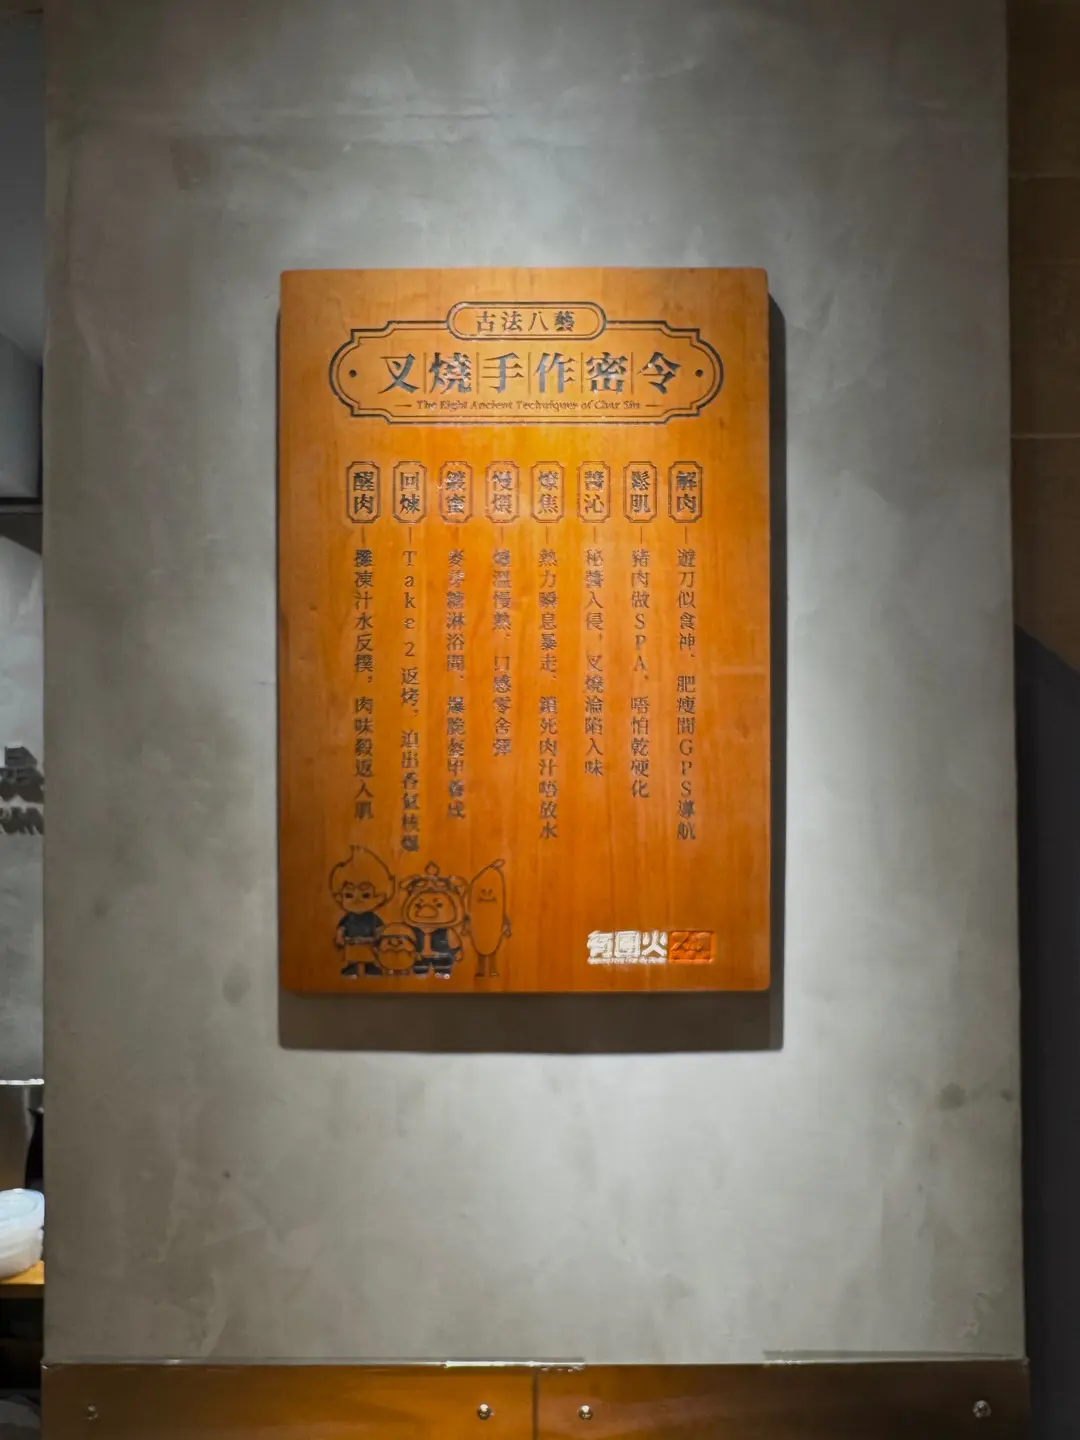 古法八藝
叉燒手作密令
The Eight Ancient Techniques of Char Siu
解肉
遊刀似食神，肥瘦間GPS導航
鬆肌
豬肉做SPA，唔怕乾硬化
醬沁
秘醬入侵，叉燒淪陷入味
燎焦
熱力瞬息暴走，鎖死肉汁唔放水
慢煨
爐溫慢熱，口感零舍彈
鍛蜜
麥芽糖淋浴間，爆脆盔甲養成
回煉
Take 2 返烤，迫出香氣核爆
醒肉
攤凍汁水反撲，肉味殺返入肌
有團火